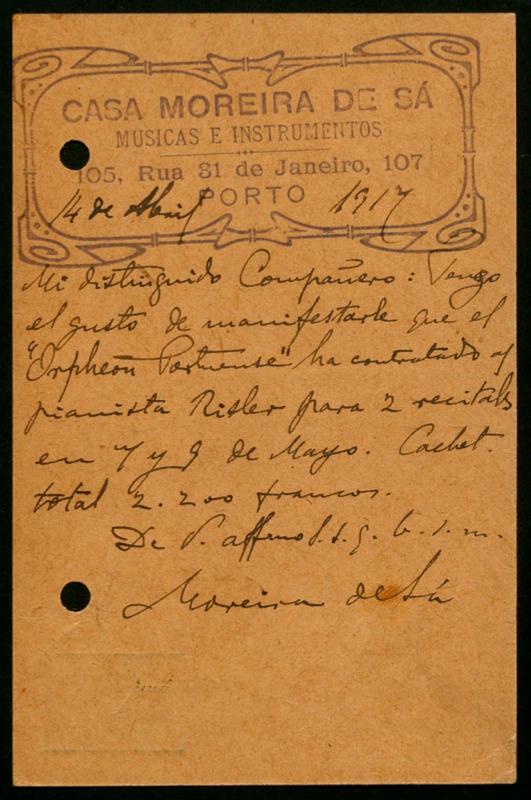 CASA MOREIRA DE SÁ
MUSICAS E INSTRUMENTOS
105, Rua 31 de Janeiro, 107
PORTO
14 de Abril 1917
Mi distinguido Compañero: Tengo
el gusto de manifestarle que el
"Orpheon Portuense" ha contratado al
pianista Risler para 2 recitals
en 7 y 9 de Mayo. Cachet
total 2.200 francos.
De V. affmo s.s.q.b.s.m.
Moreira de Sá